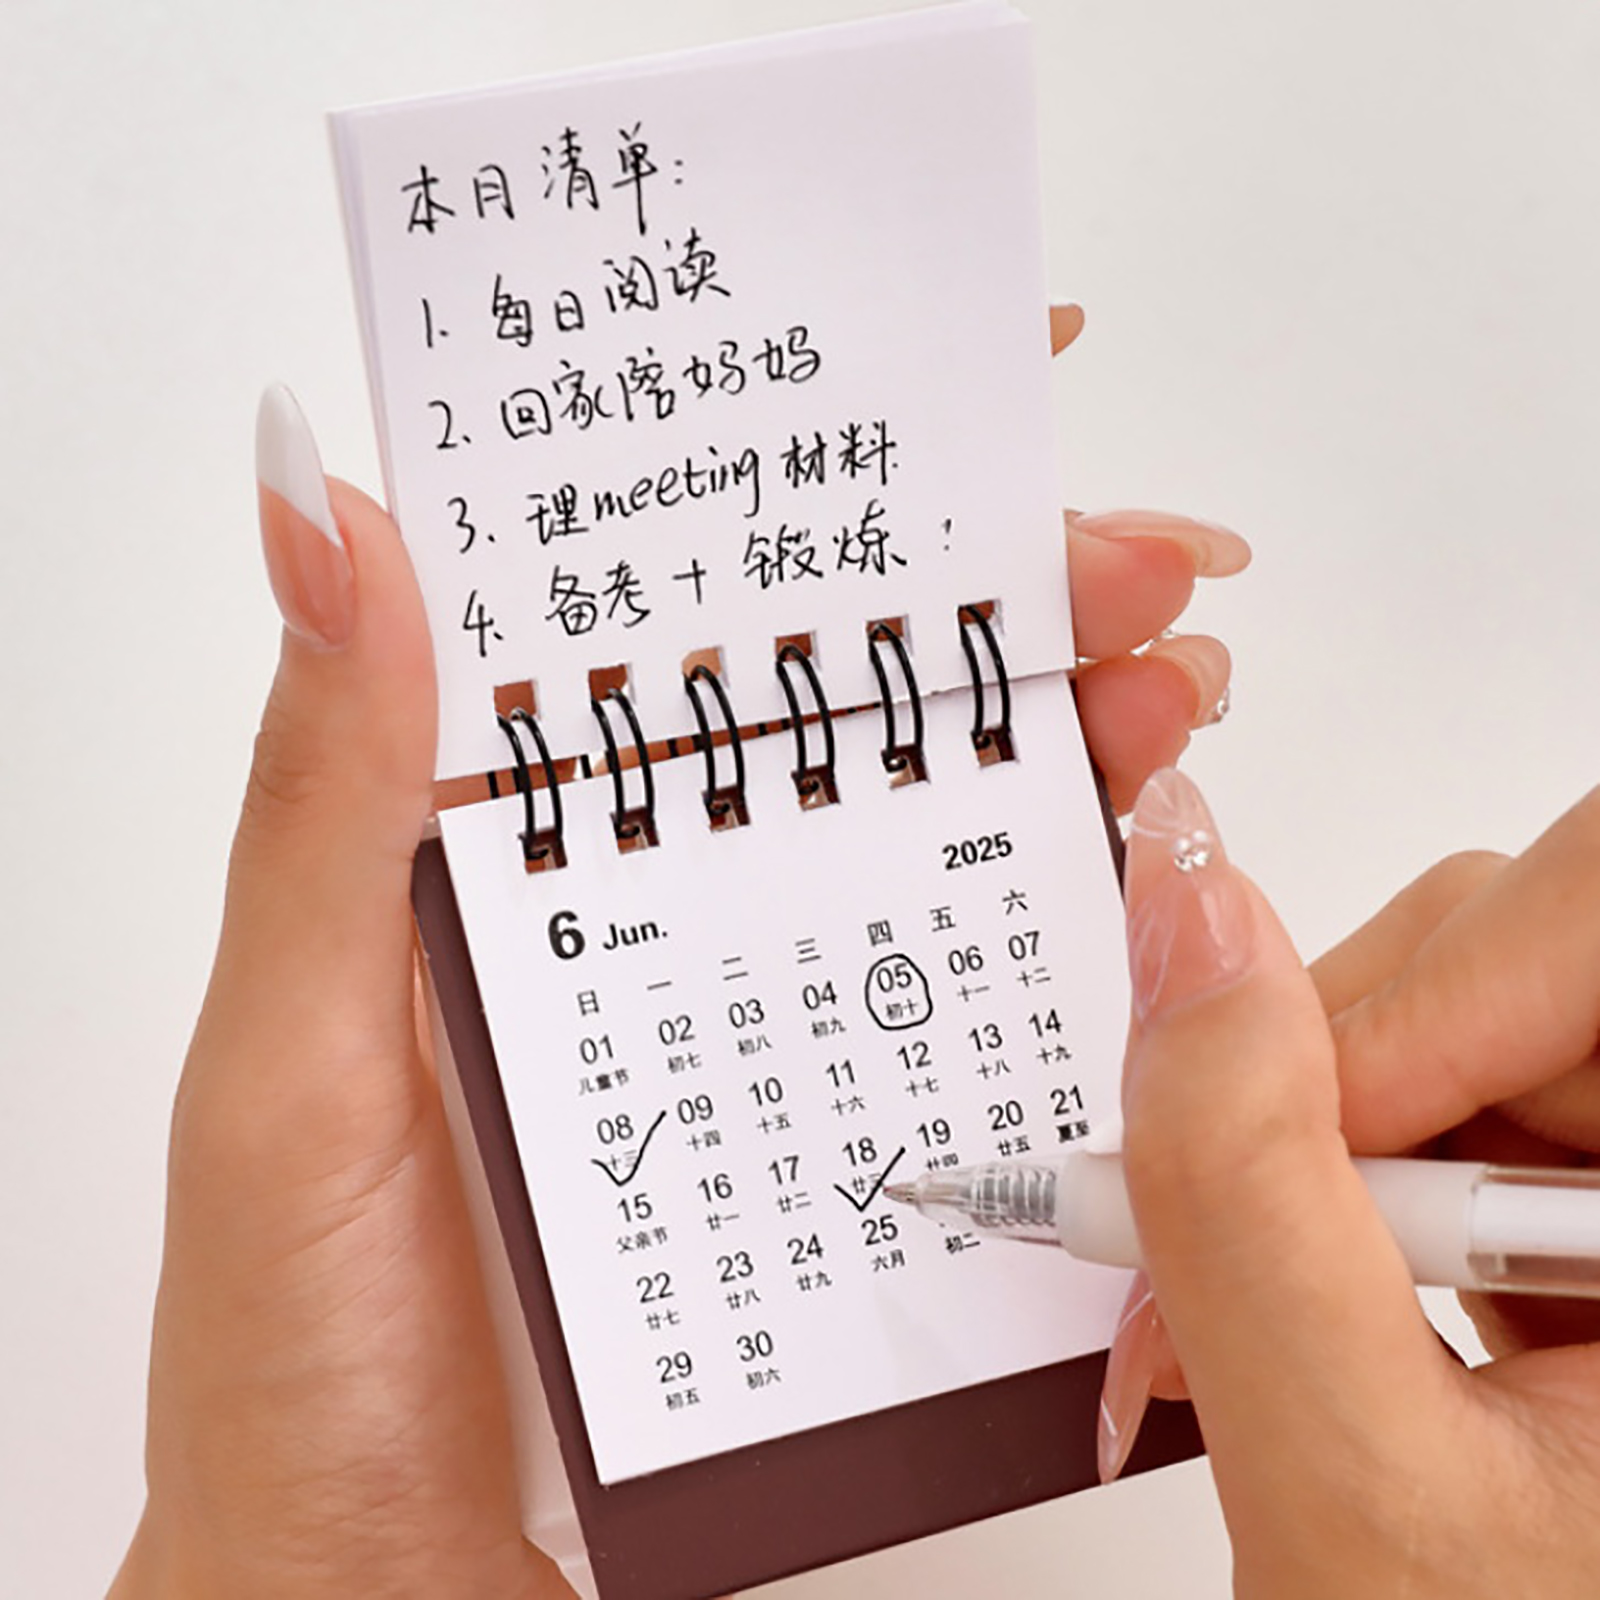 本月清单:
1. 每日阅读
2. 回家陪妈妈
3. 理meeting材料
4. 备考+锻炼!
2025
6 Jun.
日 一 二 三 四 五 六
01 02 03 04 05 06 07
儿童节 初七 初八 初九 初十 十一 十二
08 09 10 11 12 13 14
十三 十四 十五 十六 十七 十八 十九
15 16 17 18 19 20 21
父亲节 廿一 廿二 廿三 廿四 廿五 夏至
22 23 24 25
廿七 廿八 廿九 六月 初二
29 30
初五 初六